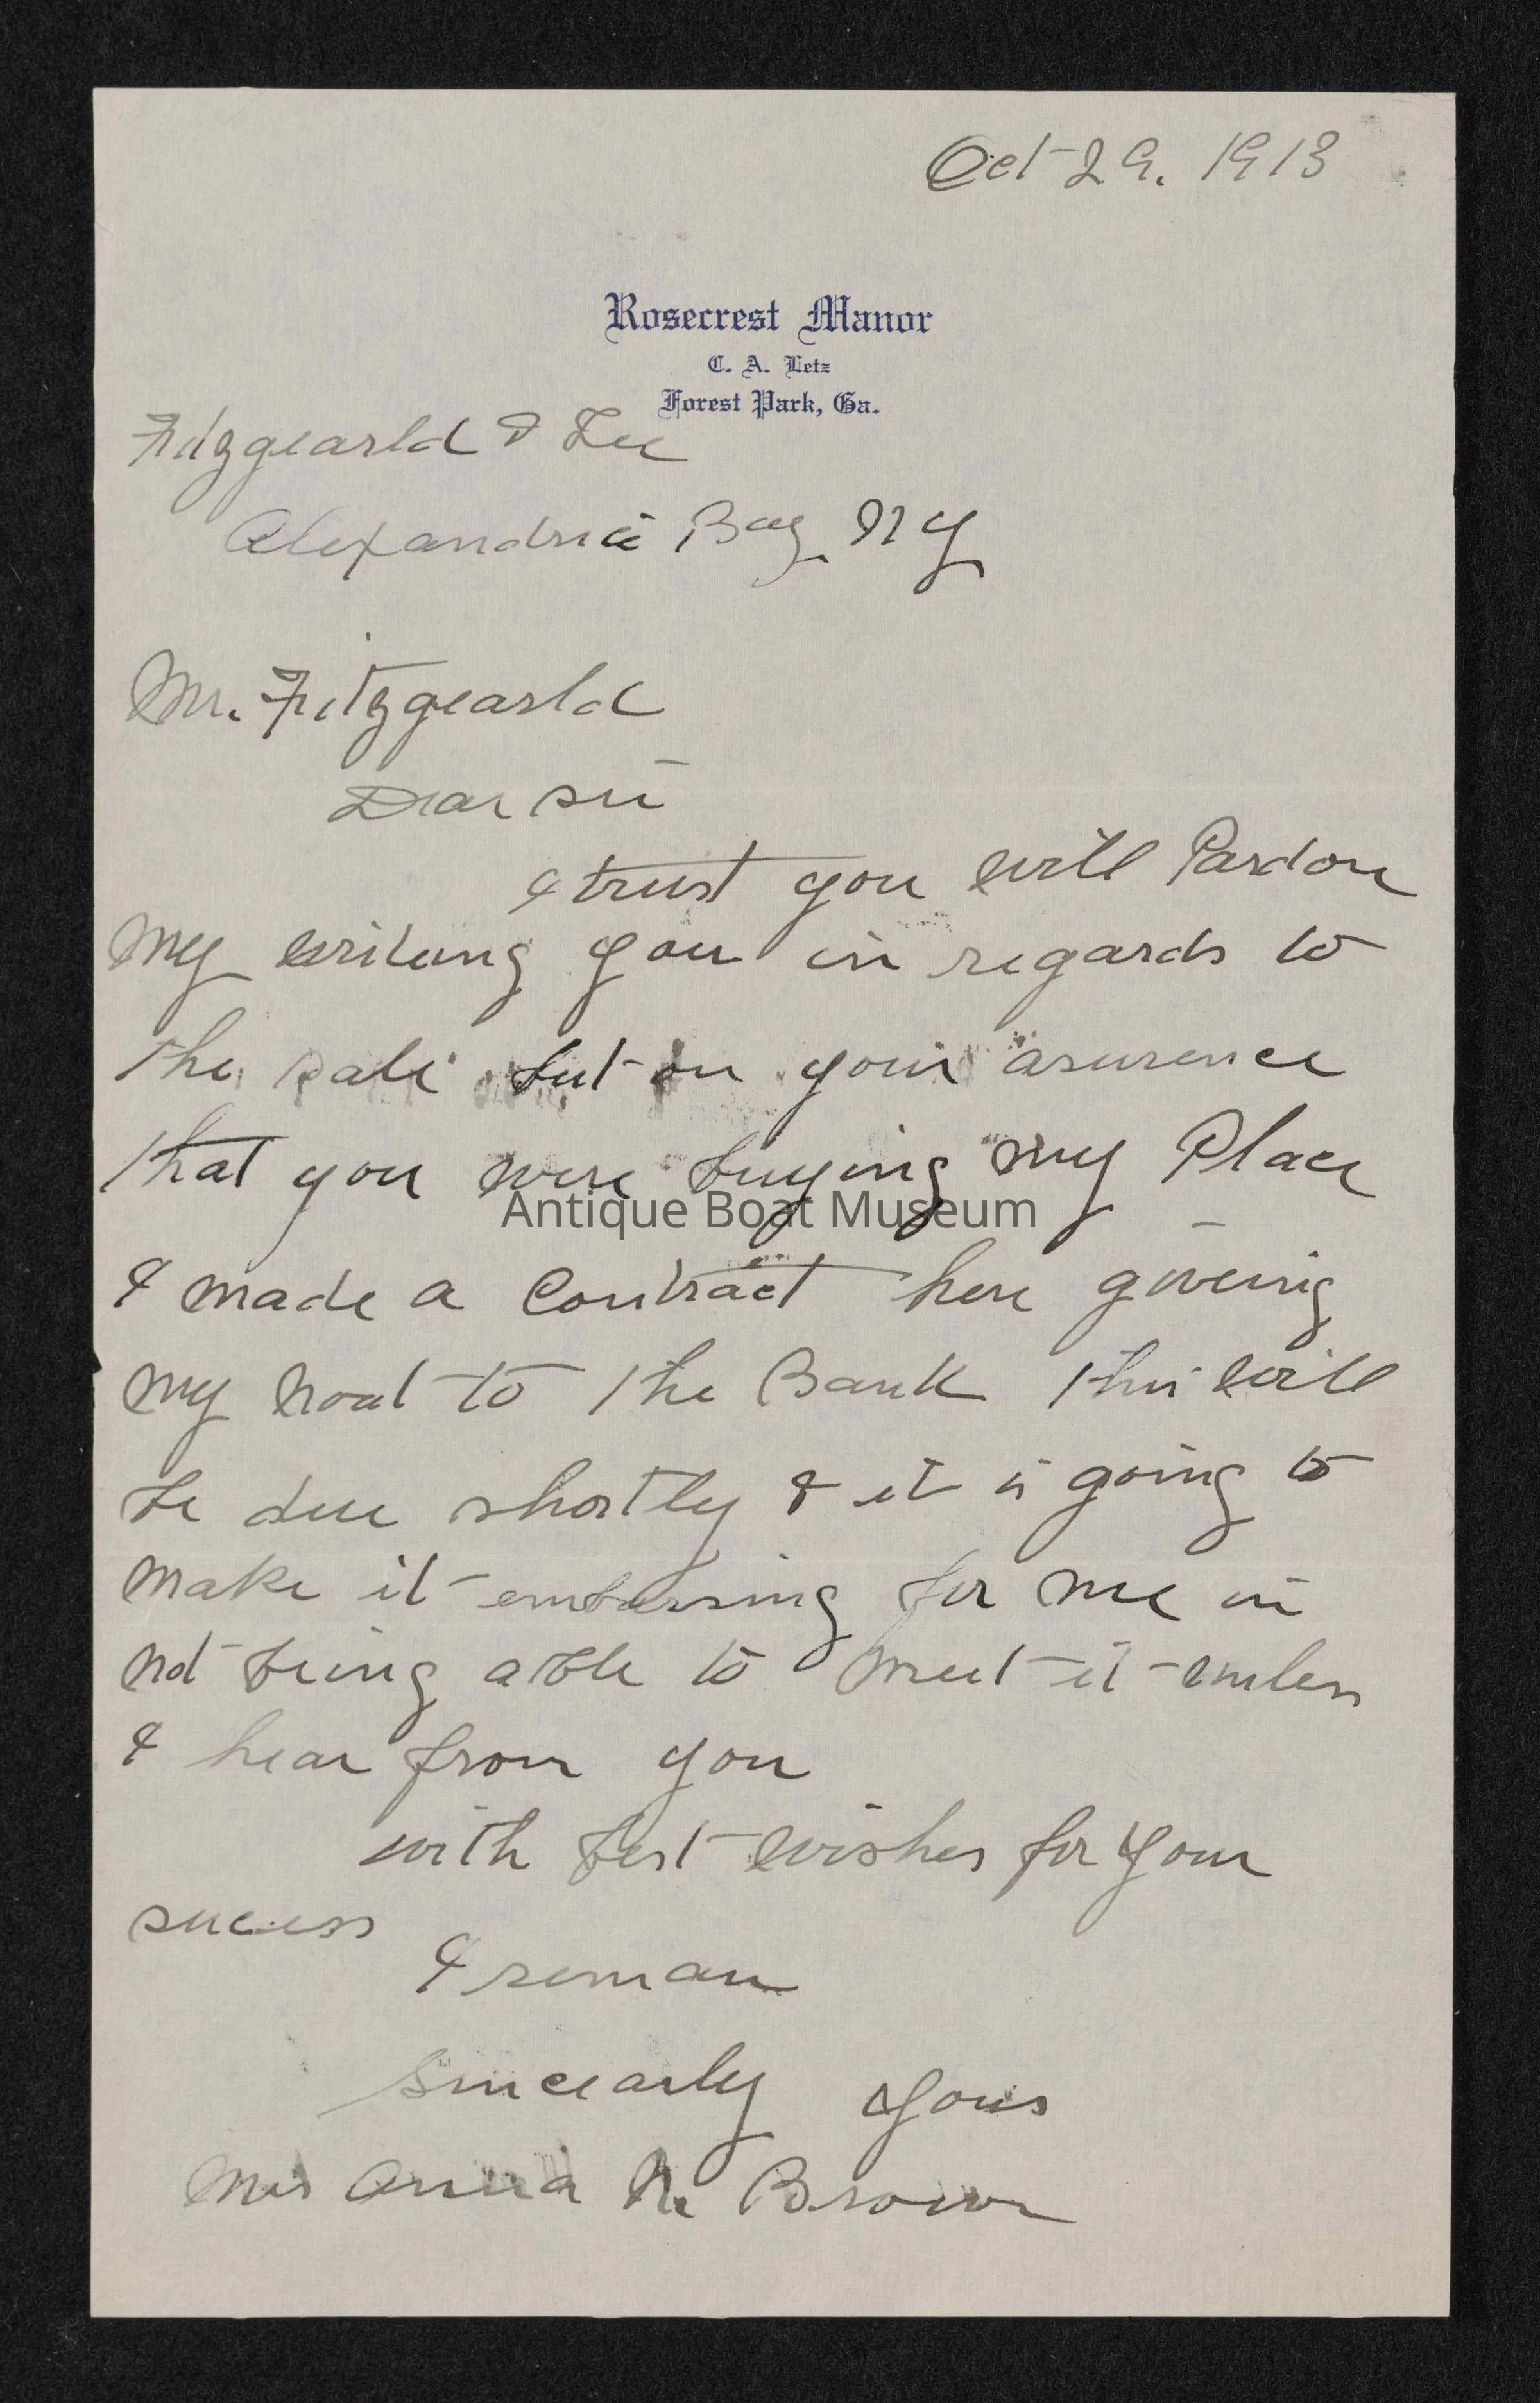 Oct 29. 1913
Rosecrest Manor
C. A. Letz
Forest Park, Ga.
Fitzgearld & Lee
Alexandria Bay, N Y
Mr. Fitzgearld
Dear Sir
I trust you will Pardon
my writing you in regards to
the sale but on your asurence
that you were buying my Place
Antique Boat Museum
I made a Contract here giveing
my noat to the Bank this will
be due shortly & it is going to
make it embarssing for me in
not being able to meet it unless
I hear from you
with best wishes for your
sucess
I reman
Sincearly yours
Mrs Anna N. Brown